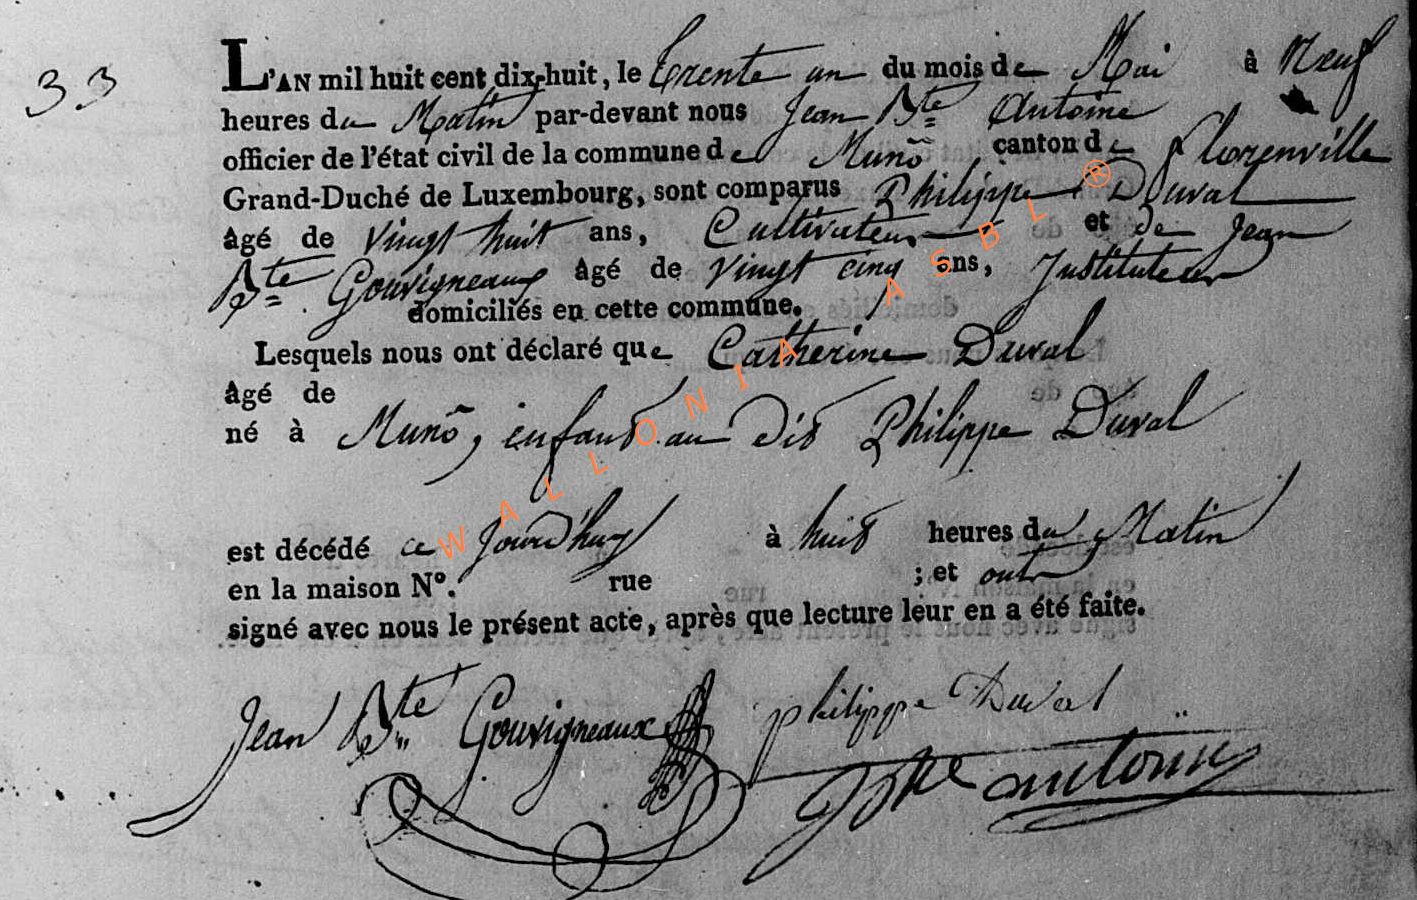 33
L'AN mil huit cent dix-huit, le trente un du mois de Mai à Neuf
heures du Matin par-devant nous Jean Bte Antoine
officier de l'état civil de la commune de Muno canton de Florenville
Grand-Duché de Luxembourg, sont comparus Philippe Duval
âgé de vingt huit ans, Cultivateur et de Jean
Bte Gouvigneaux âgé de vingt cinq ans, Instituteur
domiciliés en cette commune.
Lesquels nous ont déclaré que Catherine Duval
âgé de
né à Muno, enfant au dit Philippe Duval
est décédé ce Jourd'huy à huit heures du Matin
en la maison N°. rue ; et ont
signé avec nous le présent acte, après que lecture leur en a été faite.
Jean Bte Gouvigneaux philippe Duval
JBte antoine
WALLONIA ASBL ®